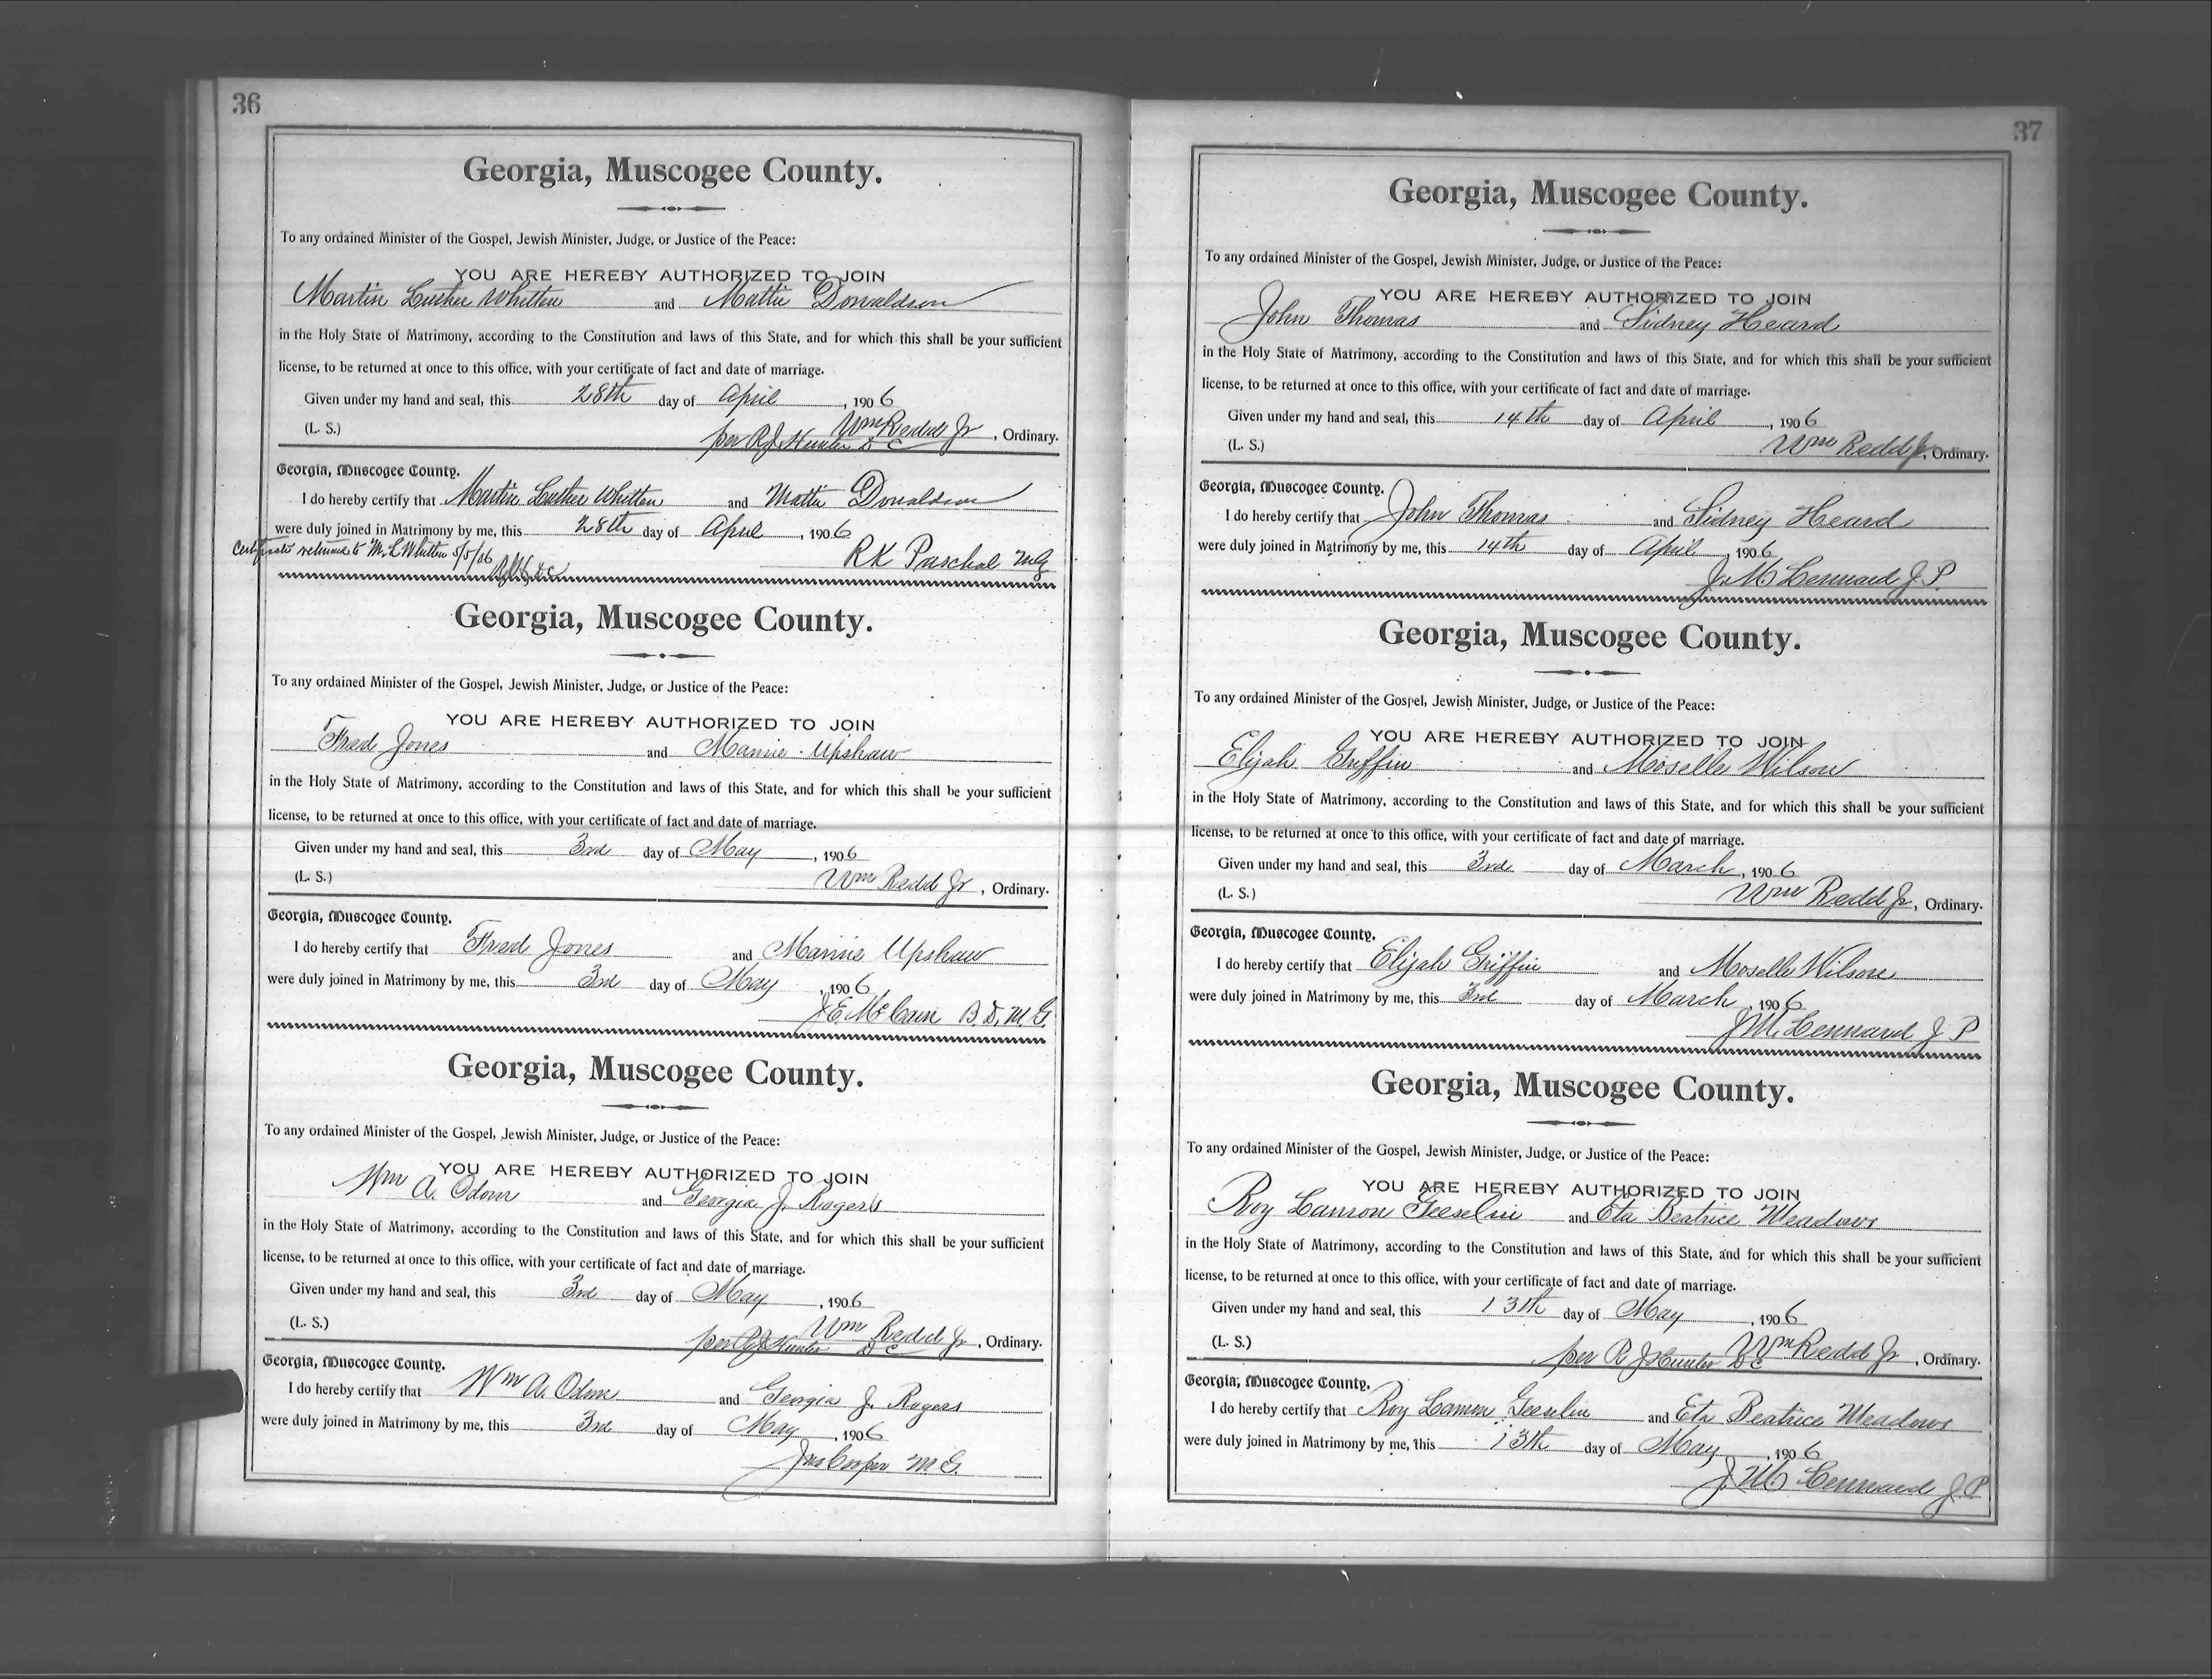 36
Georgia, Muscogee County.
To any ordained Minister of the Gospel, Jewish Minister, Judge, or Justice of the Peace:
YOU ARE HEREBY AUTHORIZED TO JOIN
Martin Luther Whitten and Mattie Donaldson
in the Holy State of Matrimony, according to the Constitution and laws of this State, and for which this shall be your sufficient
license, to be returned at once to this office, with your certificate of fact and date of marriage.
Given under my hand and seal, this 28th day of April, 1906
Wm Redd Jr
(L. S.) per R J Hunter D C, Ordinary.
Georgia, Muscogee County.
I do hereby certify that Martin Luther Whitten and Mattie Donaldson
were duly joined in Matrimony by me, this 28th day of April, 1906
Certificate returned to M. L Whitten 5/5/06
R K Paschal M G
Georgia, Muscogee County.
To any ordained Minister of the Gospel, Jewish Minister, Judge, or Justice of the Peace:
YOU ARE HEREBY AUTHORIZED TO JOIN
Fred Jones and Mamie Upshaw
in the Holy State of Matrimony, according to the Constitution and laws of this State, and for which this shall be your sufficient
license, to be returned at once to this office, with your certificate of fact and date of marriage.
Given under my hand and seal, this 3rd day of May, 1906
(L. S.) Wm Redd Jr, Ordinary.
Georgia, Muscogee County.
I do hereby certify that Fred Jones and Mamie Upshaw
were duly joined in Matrimony by me, this 3rd day of May, 1906
J E McCain B. D, M. G.
Georgia, Muscogee County.
To any ordained Minister of the Gospel, Jewish Minister, Judge, or Justice of the Peace:
YOU ARE HEREBY AUTHORIZED TO JOIN
Wm A. Odom and Georgia J. Rogers
in the Holy State of Matrimony, according to the Constitution and laws of this State, and for which this shall be your sufficient
license, to be returned at once to this office, with your certificate of fact and date of marriage.
Given under my hand and seal, this 3rd day of May, 1906
Wm Redd Jr
(L. S.) per R J Hunter D C, Ordinary.
Georgia, Muscogee County.
I do hereby certify that Wm A. Odom and Georgia J. Rogers
were duly joined in Matrimony by me, this 3rd day of May, 1906
Jno Cooper M G.
37
Georgia, Muscogee County.
To any ordained Minister of the Gospel, Jewish Minister, Judge, or Justice of the Peace:
YOU ARE HEREBY AUTHORIZED TO JOIN
John Thomas and Sidney Heard
in the Holy State of Matrimony, according to the Constitution and laws of this State, and for which this shall be your sufficient
license, to be returned at once to this office, with your certificate of fact and date of marriage.
Given under my hand and seal, this 14th day of April, 1906
(L. S.) Wm Redd Jr, Ordinary.
Georgia, Muscogee County.
I do hereby certify that John Thomas and Sidney Heard
were duly joined in Matrimony by me, this 14th day of April, 1906
J. M Lennard J. P.
Georgia, Muscogee County.
To any ordained Minister of the Gospel, Jewish Minister, Judge, or Justice of the Peace:
YOU ARE HEREBY AUTHORIZED TO JOIN
Elijah Griffin and Moselle Wilson
in the Holy State of Matrimony, according to the Constitution and laws of this State, and for which this shall be your sufficient
license, to be returned at once to this office, with your certificate of fact and date of marriage.
Given under my hand and seal, this 3rd day of March, 1906
(L. S.) Wm Redd Jr, Ordinary.
Georgia, Muscogee County.
I do hereby certify that Elijah Griffin and Moselle Wilson
were duly joined in Matrimony by me, this 3rd day of March, 1906
J M. Lennard J P
Georgia, Muscogee County.
To any ordained Minister of the Gospel, Jewish Minister, Judge, or Justice of the Peace:
YOU ARE HEREBY AUTHORIZED TO JOIN
Roy Lamon Geeslin and Eta Beatrice Meadows
in the Holy State of Matrimony, according to the Constitution and laws of this State, and for which this shall be your sufficient
license, to be returned at once to this office, with your certificate of fact and date of marriage.
Given under my hand and seal, this 13th day of May, 1906
(L. S.) per R J Hunter D C Wm Redd Jr, Ordinary.
Georgia, Muscogee County.
I do hereby certify that Roy Lamon Geeslin and Eta Beatrice Meadows
were duly joined in Matrimony by me, this 13th day of May, 1906
J. M Lennard J. P